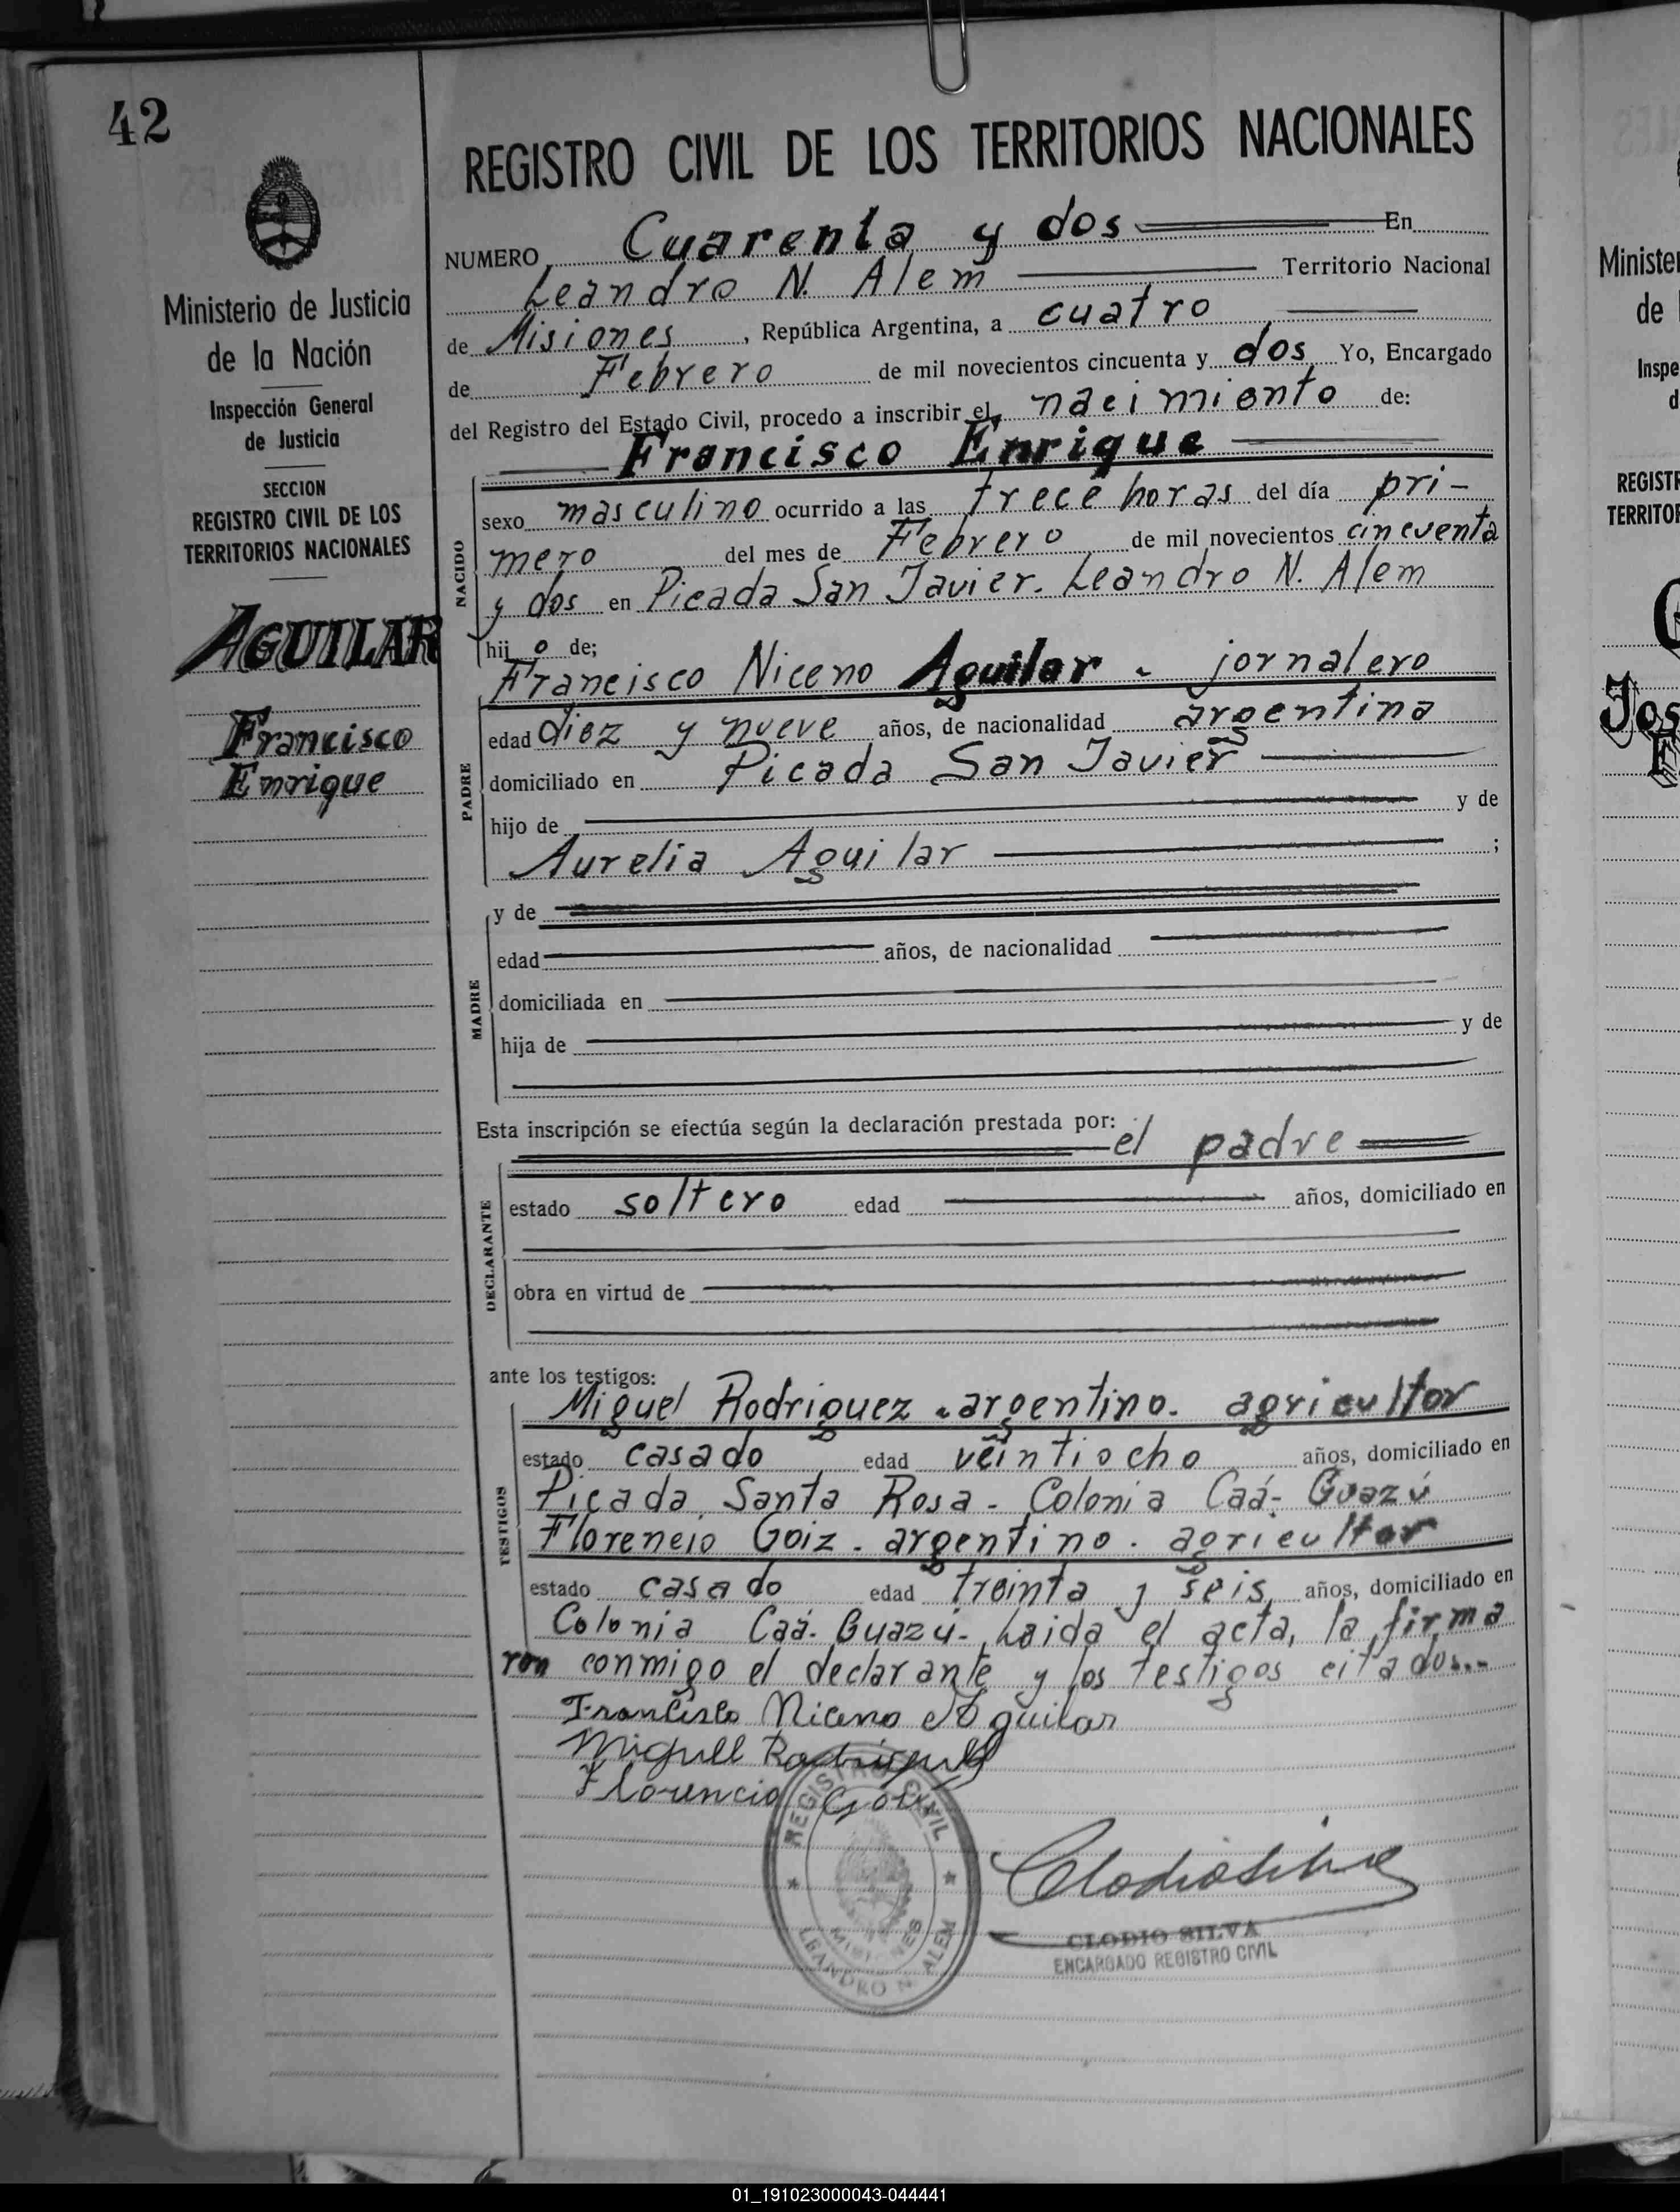 42
Ministerio de Justicia
de la Nación
Inspección General
de Justicia
SECCION
REGISTRO CIVIL DE LOS
TERRITORIOS NACIONALES
AGUILAR
Francisco
Enrique
REGISTRO CIVIL DE LOS TERRITORIOS NACIONALES
NUMERO Cuarenta y dos En
Leandro N. Alem Territorio Nacional
de Misiones, República Argentina, a cuatro
de Febrero de mil novecientos cincuenta y dos Yo, Encargado
del Registro del Estado Civil, procedo a inscribir el nacimiento de:
Francisco Enrique
NACIDO
sexo masculino ocurrido a las trece horas del día pri-
mero del mes de Febrero de mil novecientos cincuenta
y dos en Picada San Javier. Leandro N. Alem
hijo de;
Francisco Niceno Aguilar - jornalero
PADRE
edad diez y nueve años, de nacionalidad argentina
domiciliado en Picada San Javier
hijo de y de
Aurelia Aguilar ;
MADRE
y de
edad años, de nacionalidad
domiciliada en
hija de y de
Esta inscripción se efectúa según la declaración prestada por:
el padre
DECLARANTE
estado soltero edad años, domiciliado en
obra en virtud de
ante los testigos:
TESTIGOS
Miguel Rodriguez - argentino. agricultor
estado casado edad veintiocho años, domiciliado en
Picada Santa Rosa - Colonia Caá-Guazú
Florencio Goiz - argentino. agricultor
estado casado edad treinta y seis años, domiciliado en
Colonia Caá-Guazú- Leida el acta, la firma
ron conmigo el declarante y los testigos citados...
Francisco Niceno Aguilar
Miguell Rodriguez
Florencio Goiz
REGISTRO CIVIL
MISIONES
LEANDRO N. ALEM
Clodio Silva
CLODIO SILVA
ENCARGADO REGISTRO CIVIL
Minister
de
Inspe
d
REGISTR
TERRITOR
Jos
01_191023000043-044441